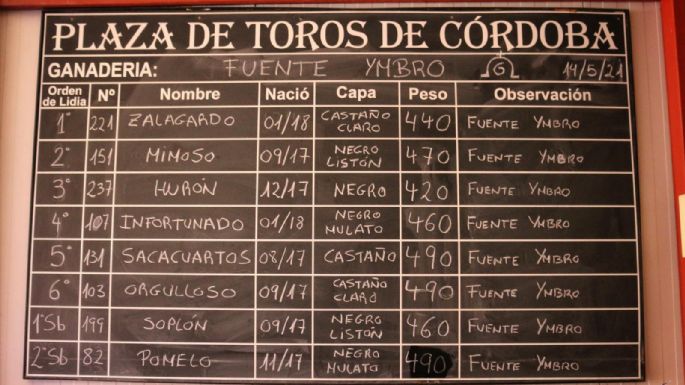 PLAZA DE TOROS DE CÓRDOBA
GANADERIA: FUENTE YMBRO G 14/5/21
Orden de Lidia Nº Nombre Nació Capa Peso Observación
1º 221 ZALAGARDO 01/18 CASTAÑO CLARO 440 FUENTE YMBRO
2º 151 MIMOSO 09/17 NEGRO LISTÓN 470 FUENTE YMBRO
3º 237 HURÓN 12/17 NEGRO 420 FUENTE YMBRO
4º 107 INFORTUNADO 01/18 NEGRO MULATO 460 FUENTE YMBRO
5º 131 SACACUARTOS 08/17 CASTAÑO 490 FUENTE YMBRO
6º 103 ORGULLOSO 09/17 CASTAÑO CLARO 490 FUENTE YMBRO
1ºSb 199 SOPLÓN 09/17 NEGRO LISTÓN 460 FUENTE YMBRO
2ºSb 82 POMELO 11/17 NEGRO MULATO 490 FUENTE YMBRO